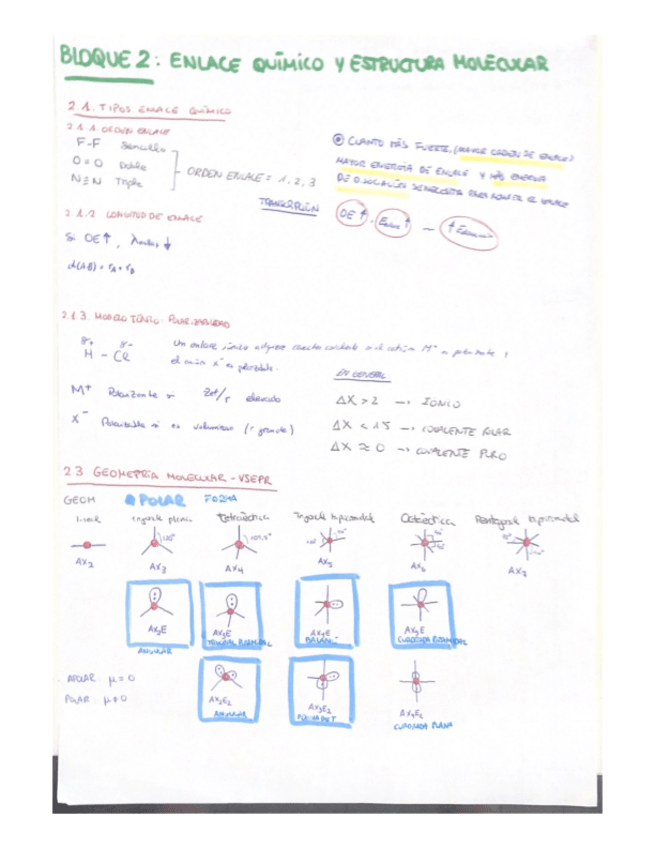 BLOQUE 2: ENLACE QUÍMICO Y ESTRUCTURA MOLECULAR
2.1. TIPOS ENLACE QUÍMICO
2.1.1. ORDEN ENLACE
F-F Sencillo
O=O Doble
N≡N Triple
ORDEN ENLACE = 1, 2, 3
CUANTO MÁS FUERTE, (MAYOR ORDEN DE ENLACE)
MAYOR ENERGÍA DE ENLACE Y MÁS ENERGÍA
DE DISOCIACIÓN SE NECESITA PARA ROMPER EL ENLACE
OE ↑ . Eenlace ↑ — ↑ Edisociación
2.1.2 LONGITUD DE ENLACE
Si OE↑, ↓
d(AB) = rA + rB
2.1.3. MODELO IÓNICO: POLARIZABILIDAD
δ+ δ-
H - Cl
Un enlace iónico adquiere carácter covalente si el catión M+ es polarizante y
el anión X- es polarizable.
M+ Polarizante si Zef/r elevado
X- Polarizable si es voluminoso (r grande)
EN GENERAL
ΔX > 2 → IONICO
ΔX < 1'5 → COVALENTE POLAR
ΔX ≈ 0 → COVALENTE PURO
2.3 GEOMETRÍA MOLECULAR - VSEPR
GEOM POLAR FORMA
lineal trigonal plana Tetraédrica Trigonal bipiramidal Octaédrica Pentagonal bipiramidal
120° 109,5°
AX2 AX3 AX4 AX5 AX6 AX7
AX2E AX3E AX4E AX5E
ANGULAR TRIGONAL PIRAMIDAL BALANCÍN CUADRADA PIRAMIDAL
APOLAR μ = 0
POLAR: μ ≠ 0
AX2E2 AX3E2 AX4E2
ANGULAR CUADRADA PLANA